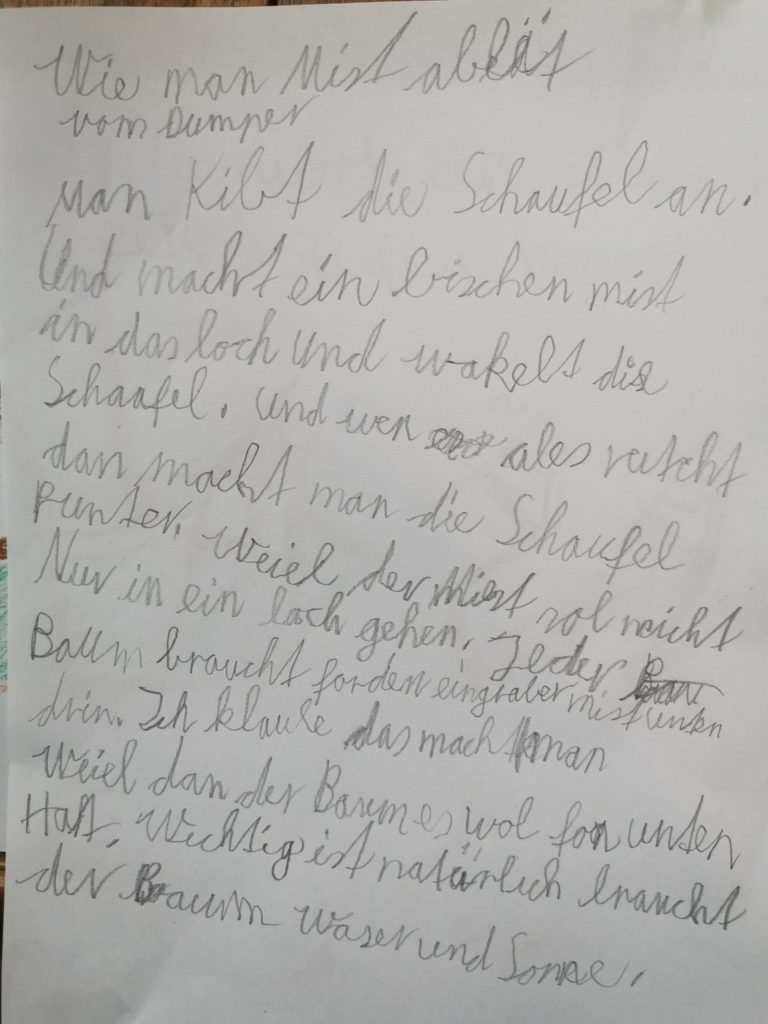 Wie man Mist ablät
vom Dumper
Man Kibt die Schaufel an.
Und macht ein bischen mist
in das loch und wakelt die
Schaufel. und wen ales rutcht
dan macht man die Schaufel
runter. Weiel der Mist sol neicht
Nur in ein loch gehen. Jeder
Baum braucht forden eingraben mist unten
drin. Ich klaube das macht man
Weiel dan der Baum es wol fon unten
Hat. Wichtig ist natürlich braucht
der Baum Waser und Sonne.